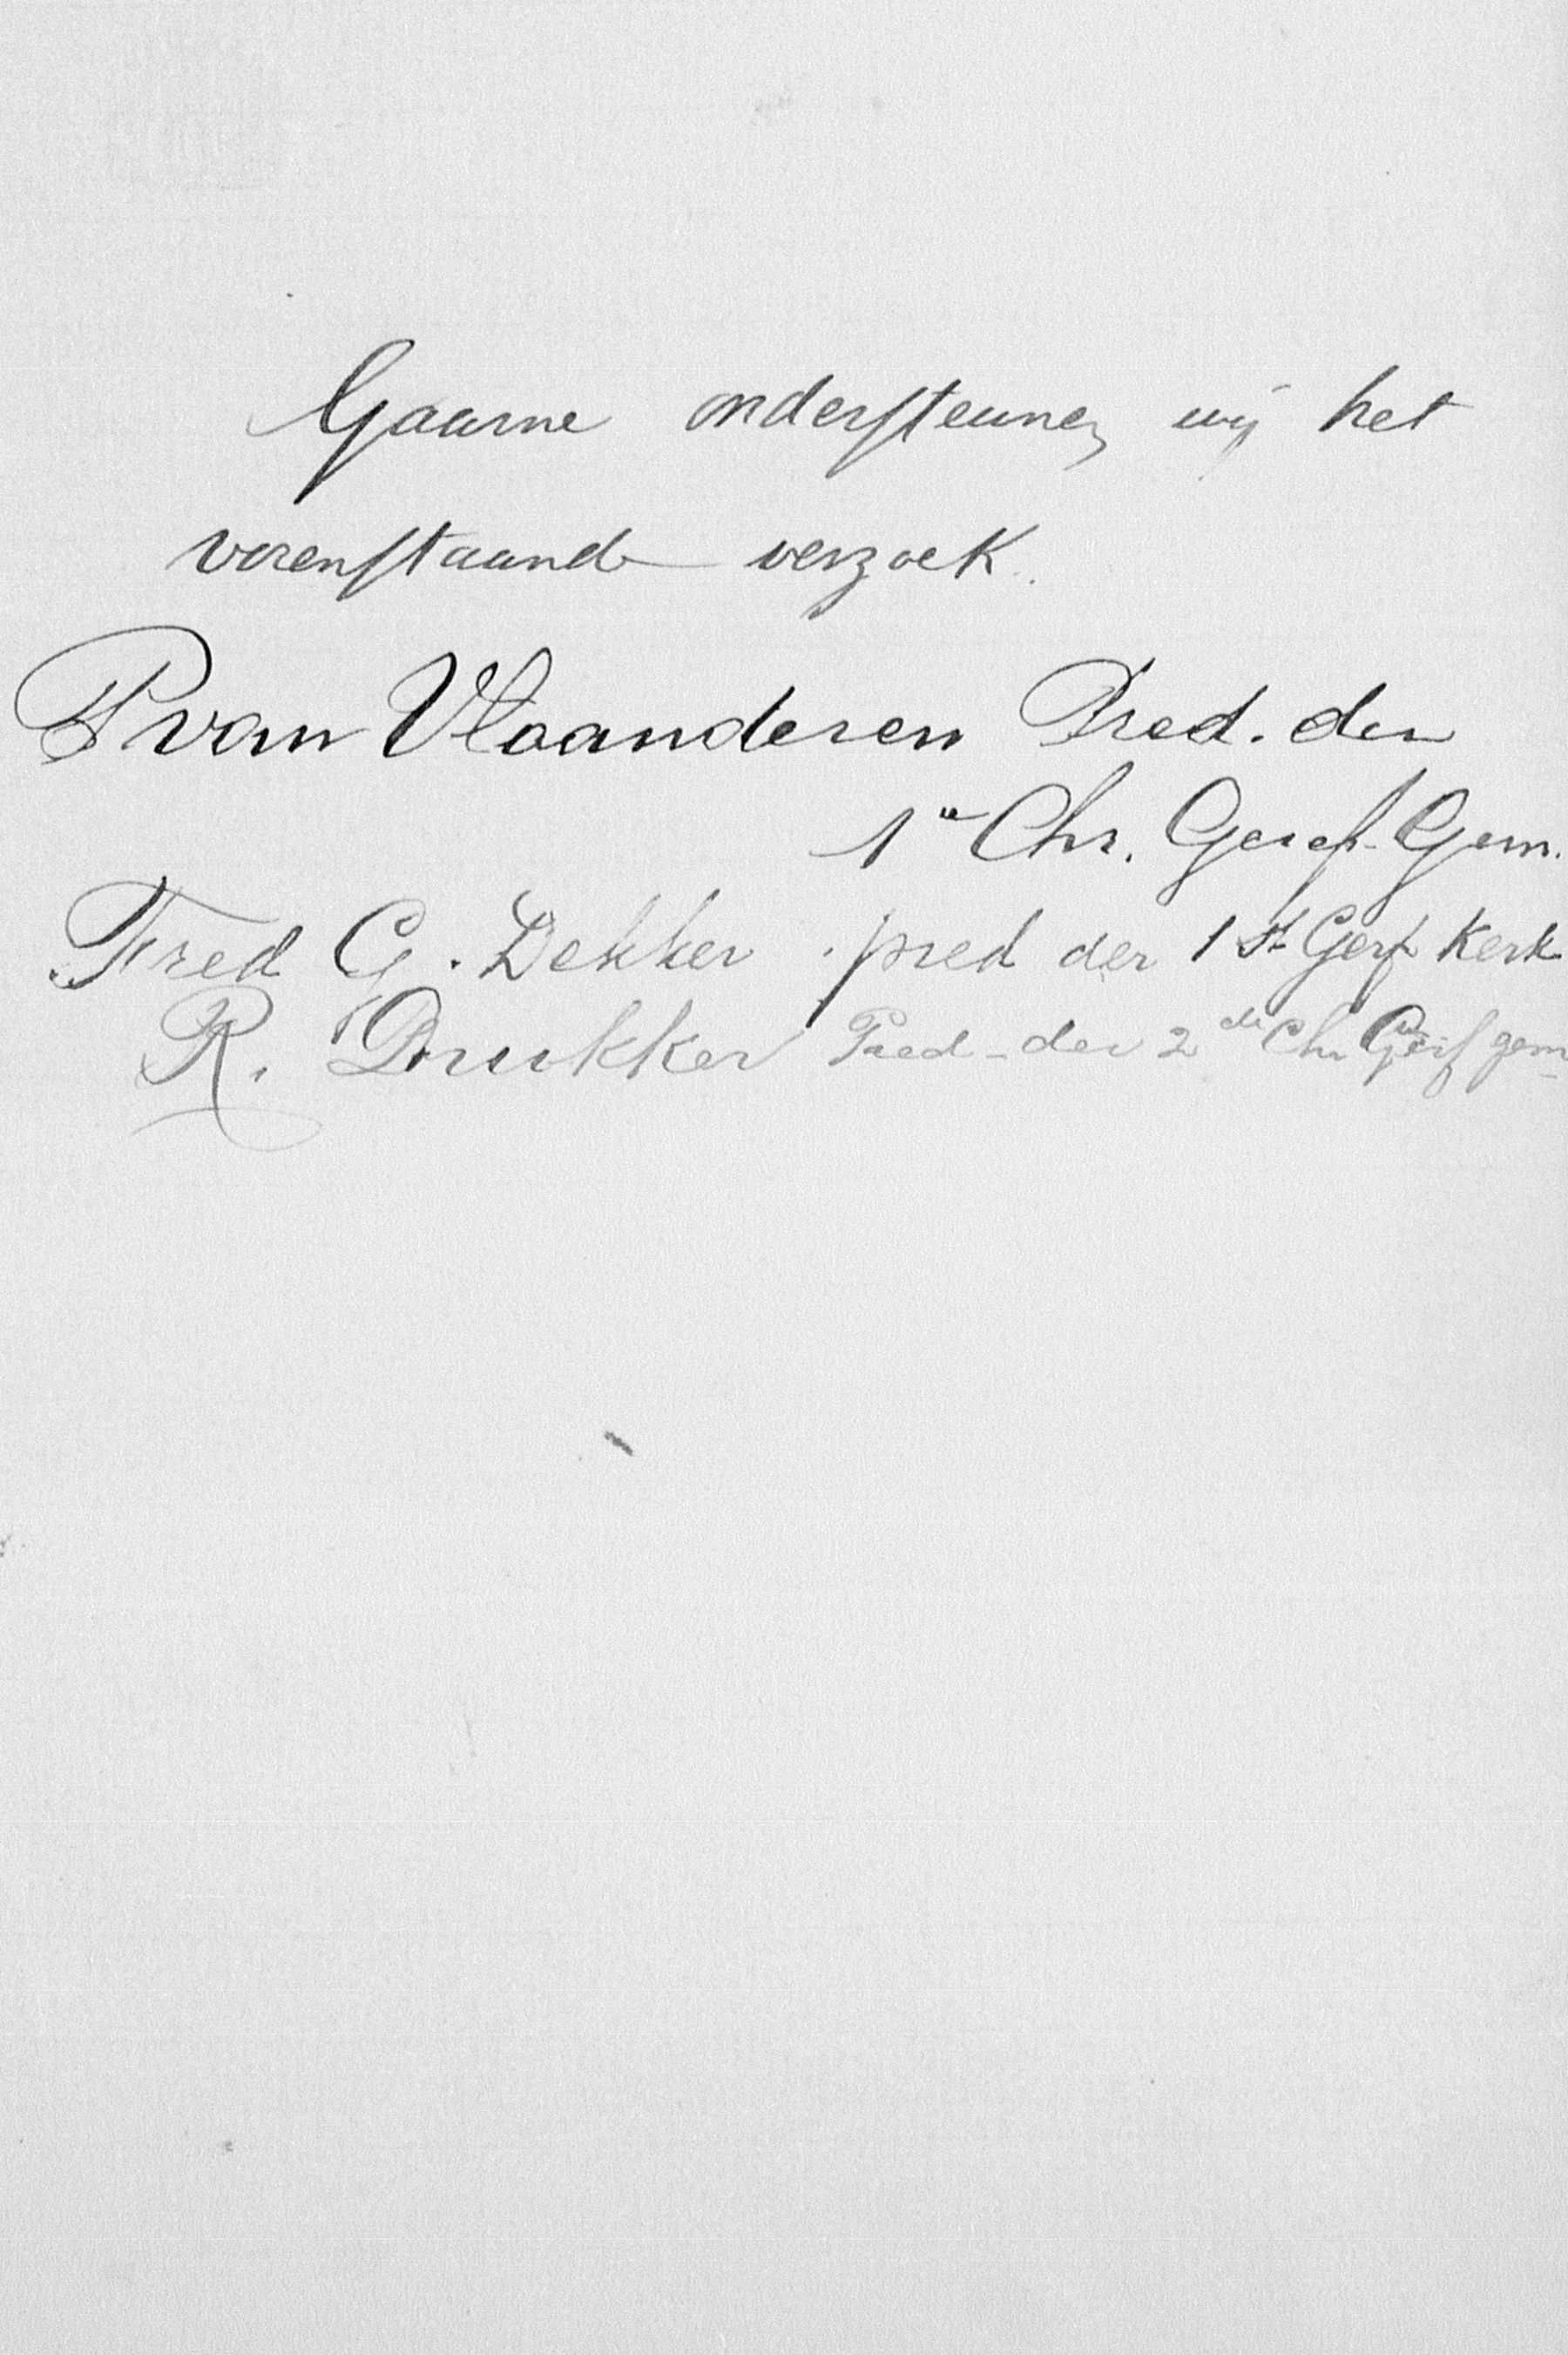 Gaarne ondersteunen wij het
vorenstaand verzoek.
P van Vlaanderen Pred. der
1e Chr. Geref. Gem.
Fred G. Dekker pred der 1st Gerf Kerk
R. Drukker Pred der 2de Chr Geref gem